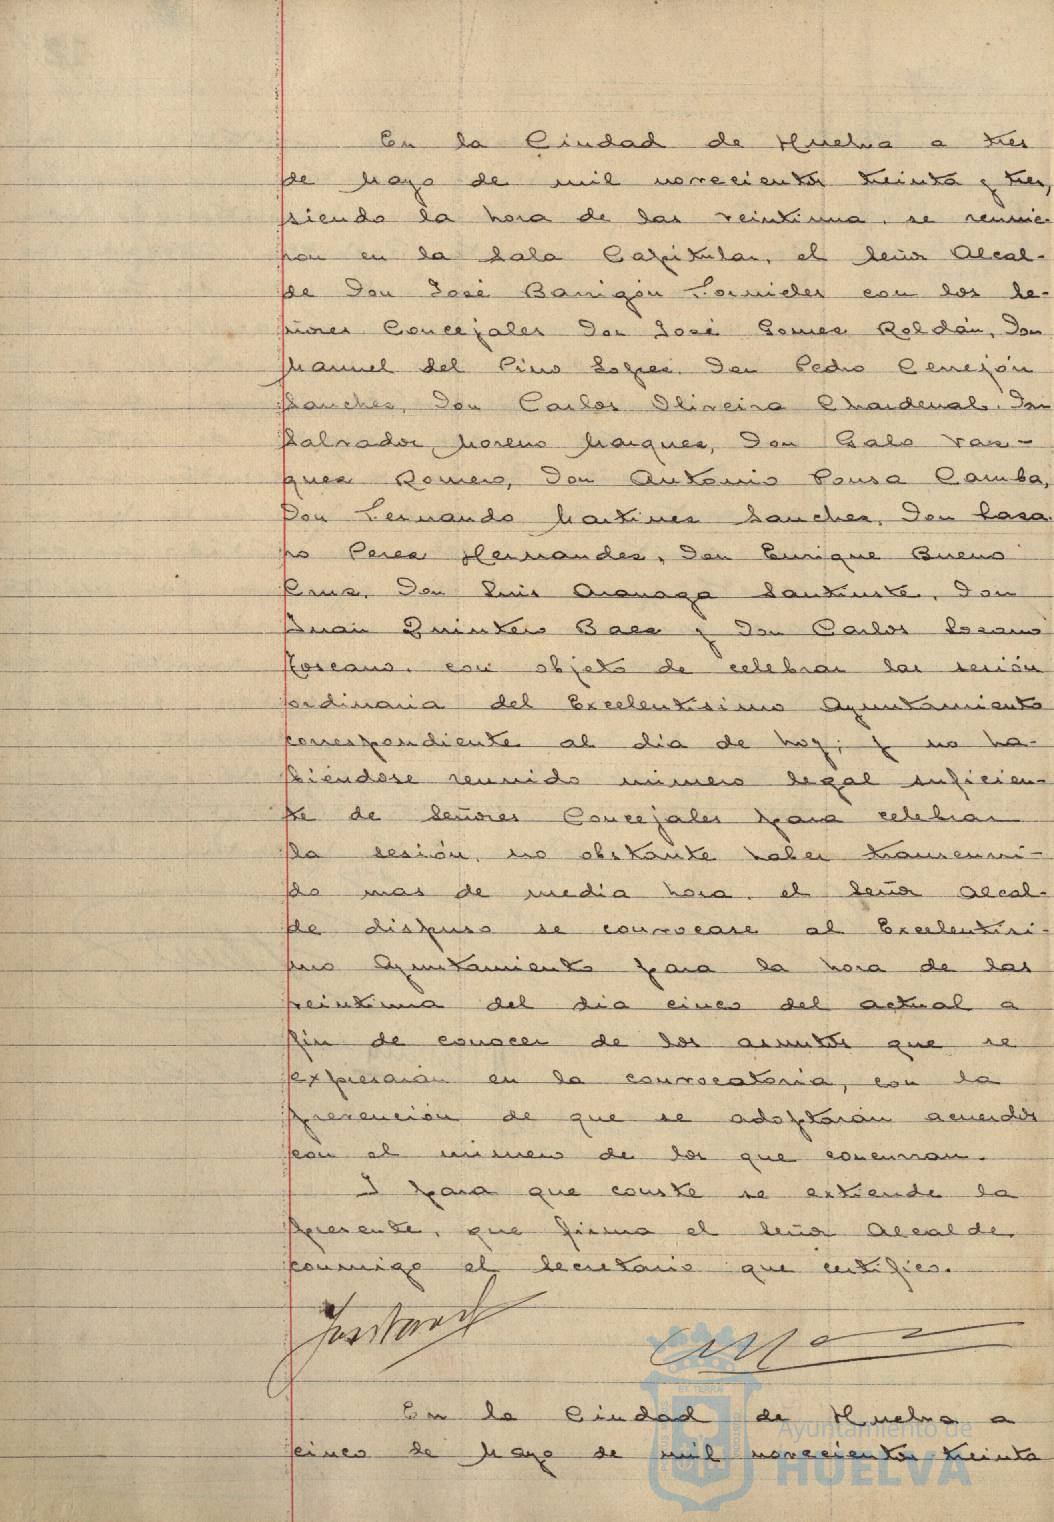 En la Ciudad de Huelva a tres
de Mayo de mil novecientos treinta y tres,
siendo la hora de las veintiuna, se reunie-
ron en la Sala Capitular, el Señor Alcal-
de Don José Barrigón Fornieles con los Se-
ñores Concejales Don José Gomez Roldán, Don
Manuel del Pino Lopez, Don Pedro Cerrejón
Sanchez, Don Carlos Oliveira Chardenal, Don
Salvador Moreno Marquez, Don Galo Vaz-
quez Romero, Don Antonio Pousa Camba,
Don Fernando Martinez Sanchez, Don Lasa
ro Perez Hernandez, Don Enrique Bueno
Cruz, Don Luis Aranaga Santiuste, Don
Juan Quintero Baez y Don Carlos Locano
Toscano, con objeto de celebrar las sesión
ordinaria del Excelentisimo Ayuntamiento
correspondiente al dia de hoy; y no ha-
biéndose reunido número legal suficien-
te de Señores Concejales para celebrar
la sesión, no obstante haber transcurri-
do mas de media hora, el Señor Alcal-
de dispuso se convocase al Excelentisi-
mo Ayuntamiento para la hora de las
veintiuna del dia cinco del actual a
fin de conocer de los asuntos que se
expresarán en la convocatoria, con la
prevención de que se adoptarán acuerdos
con el número de los que concurran.
Y para que conste se extiende la
presente, que firma el Señor Alcalde
conmigo el Secretario que certifico.
En la Ciudad de Huelva a
cinco de Mayo de mil novecientos treinta
Ayuntamiento de
HUELVA